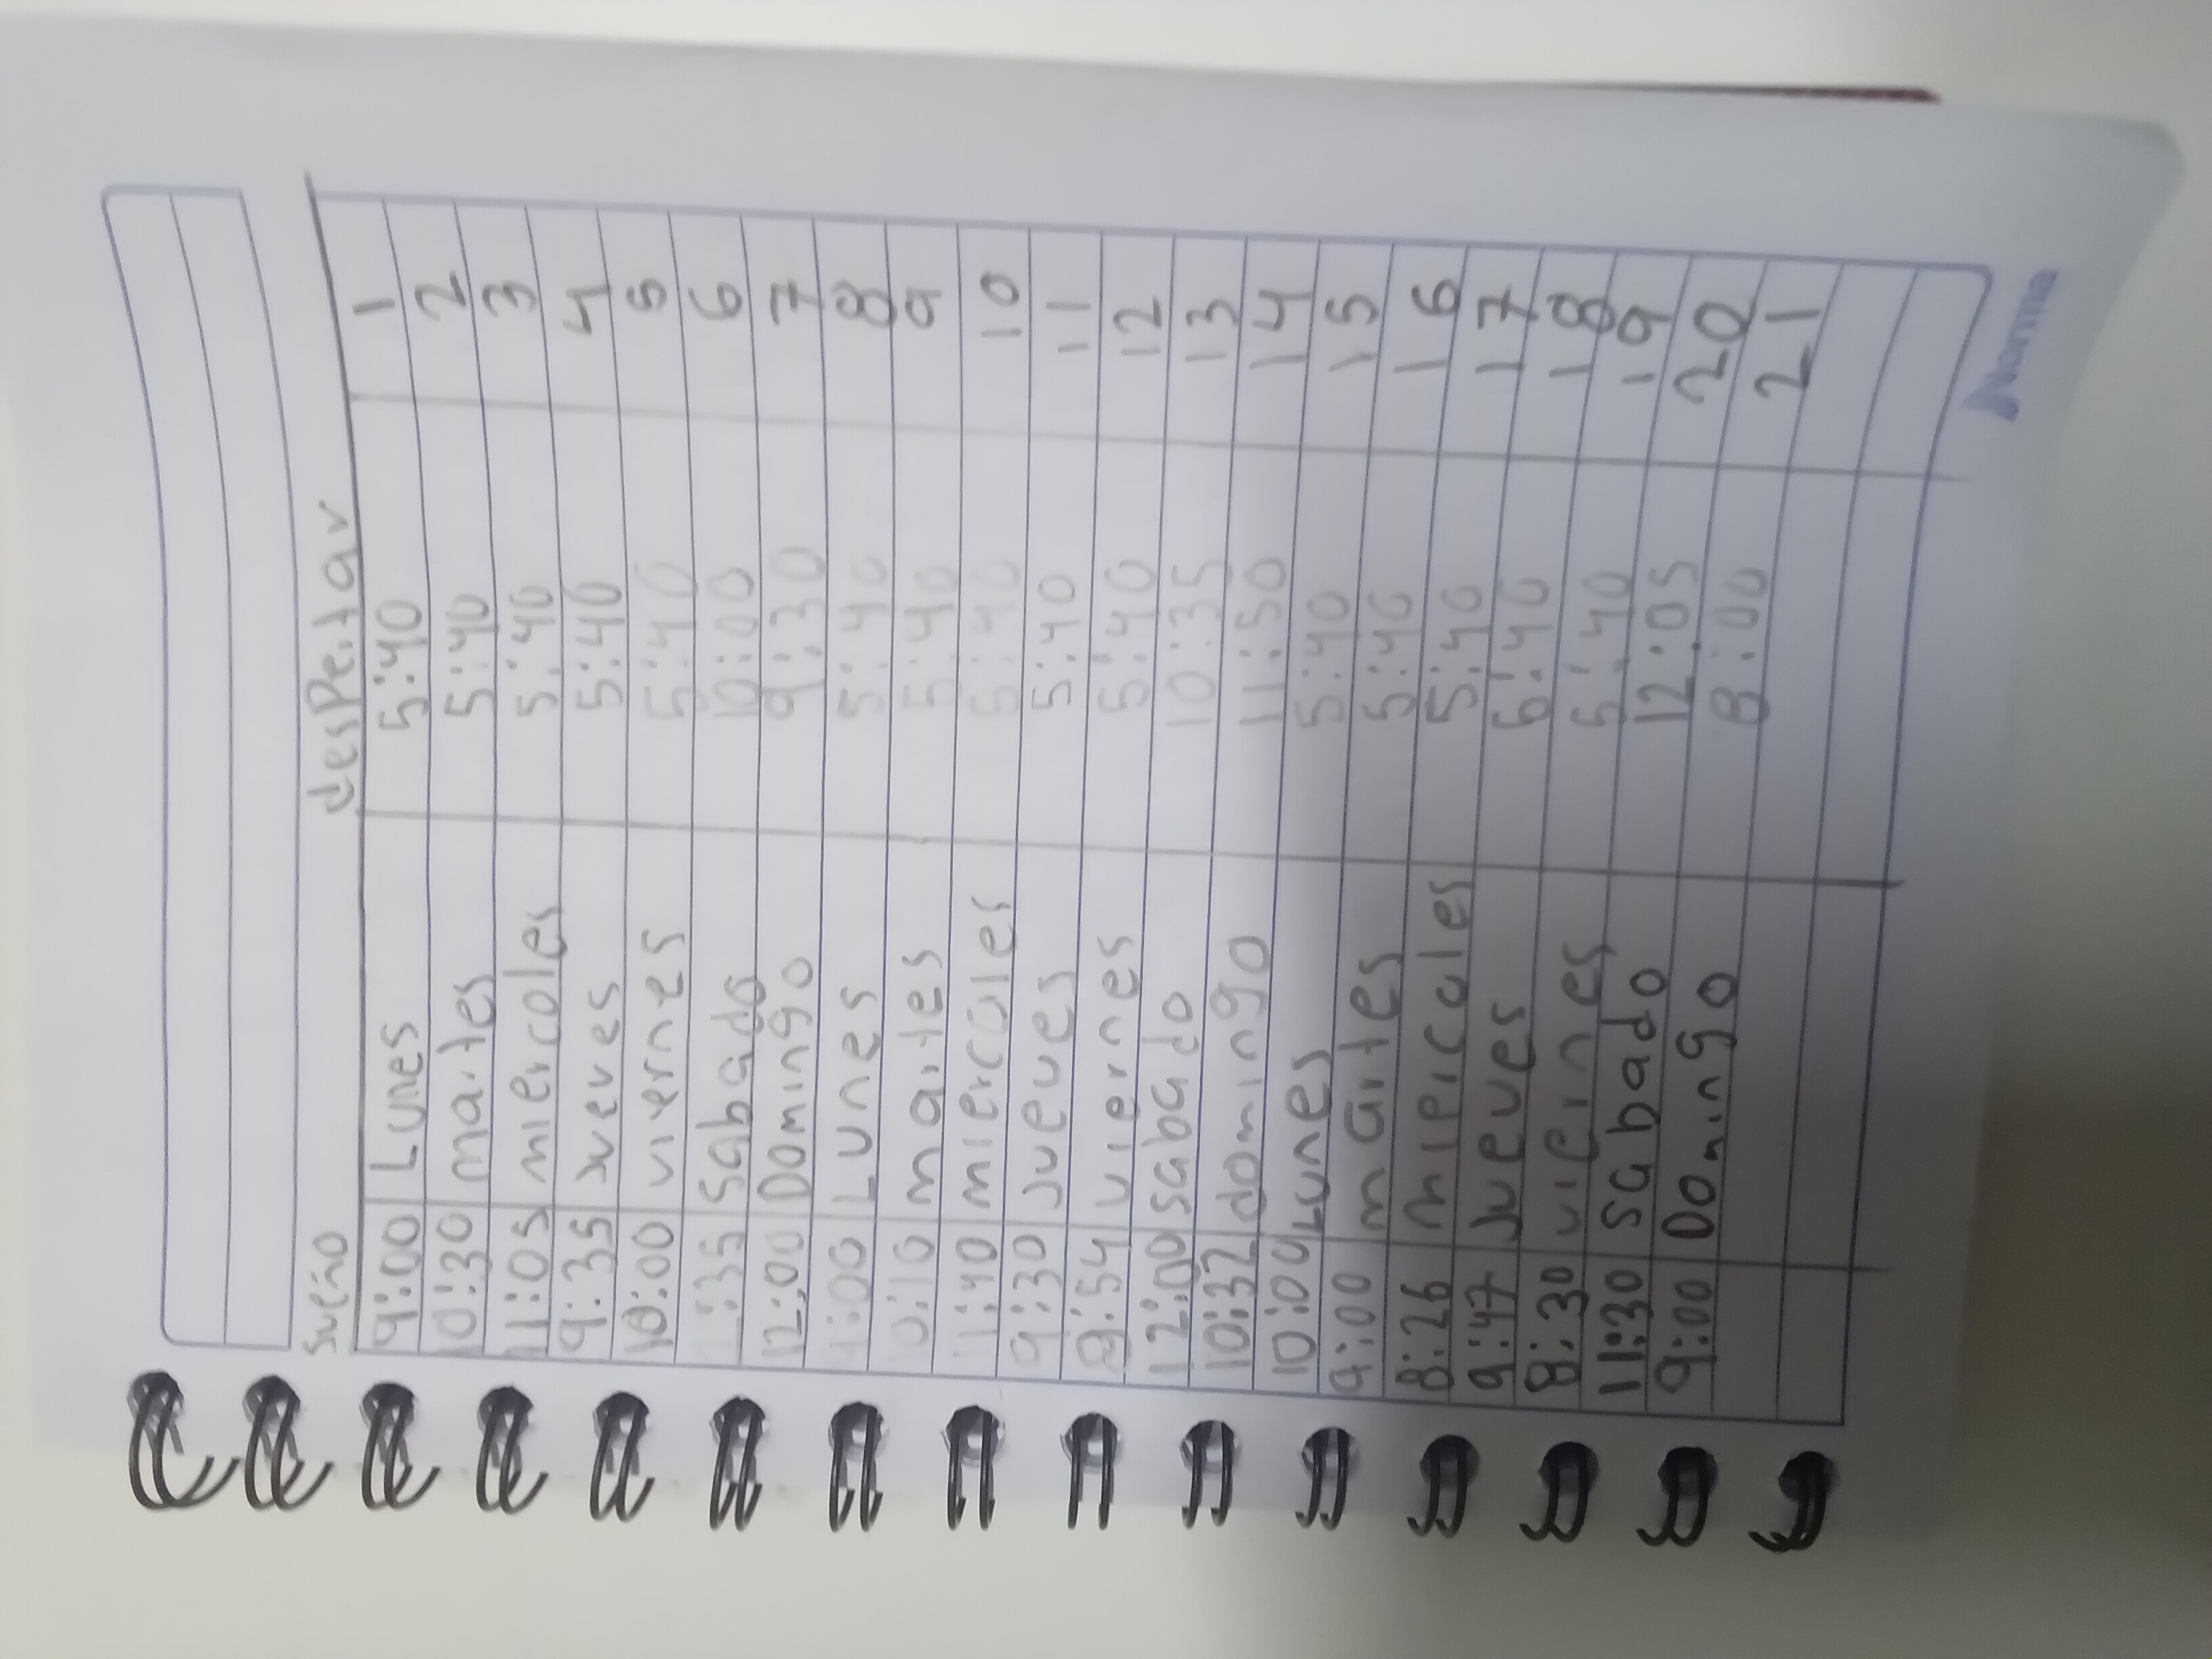 sueño despertar
9:00 Lunes 5:40 1
10:30 martes 5:40 2
11:05 miercoles 5:40 3
9:35 jueves 5:40 4
10:00 viernes 5:40 5
:35 Sabado 10:00 6
12:00 Domingo 9:30 7
:00 Lunes 5:40 8
10:10 martes 5:40 9
11:40 miercoles 5:40 10
9:30 Jueves 5:40 11
:54 viernes 5:40 12
12:00 sabado 10:35 13
10:32 domingo 11:50 14
10:00 Lunes 5:40 15
9:00 martes 5:40 16
8:26 miercoles 5:40 17
9:47 Jueves 6:40 18
8:30 viernes 5:40 19
11:30 sabado 12:05 20
9:00 Domingo 8:00 21
Norma